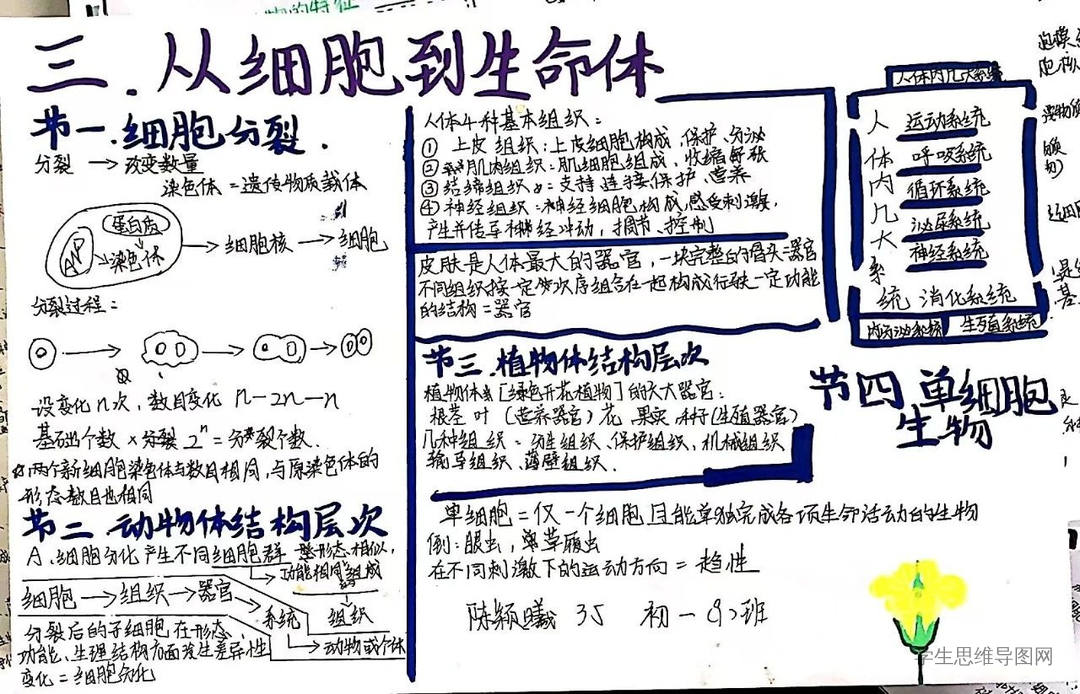 物的特征
三.从细胞到生命体
节一.细胞分裂.
分裂 → 改变数量
染色体=遗传物质载体
蛋白质
染色体
→细胞核→细胞
分裂过程:
设变化n次,数目变化 n—2n—n
基础个数×分裂2ⁿ=分裂个数.
两个新细胞染色体与数目相同,与原染色体的
形态数目也相同
节二.动物体结构层次
A.细胞分化产生不同细胞群 形态相似,
功能相同 组成
组织
细胞→组织→器官
系统
动物或个体
分裂后的子细胞在形态、
功能、生理结构方面发生差异性
变化=细胞分化
人体4种基本组织:
① 上皮组织:上皮细胞构成,保护、分泌
② 肌肉组织:肌细胞组成,收缩舒张
③ 结缔组织:支持连接保护、营养
④ 神经组织:神经细胞构成,感受刺激,
产生并传导神经冲动,调节、控制
皮肤是人体最大的器官,一块完整的骨头=器官
不同组织按一定次序组合在一起构成行使一定功能
的结构=器官
节三.植物体结构层次
植物体[绿色开花植物]的六大器官:
根茎叶(营养器官)花 果实 种子(生殖器官)
几种组织:分生组织、保护组织,机械组织
输导组织、薄壁组织.
人体内几大系统
人体内几大系统
运动系统
呼吸系统
循环系统
泌尿系统
神经系统
消化系统
内分泌系统
生殖系统
节四.单细胞
生物
单细胞=仅一个细胞且能单独完成各项生命活动的生物
例:眼虫,草履虫
在不同刺激下的运动方向=趋性
陈颖曦 35 初一 班
学生思维导图网